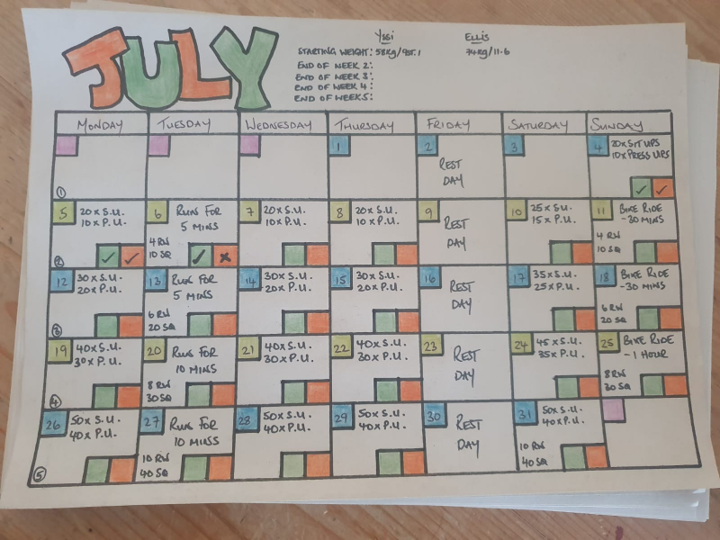 JULY
Yssi
Ellis
STARTING WEIGHT: 58kg/9ST.1
74kg/11.6
END OF WEEK 2:
END OF WEEK 3:
END OF WEEK 4:
END OF WEEK 5:
MONDAY
TUESDAY
WEDNESDAY
THURSDAY
FRIDAY
SATURDAY
SUNDAY
1
1
2
REST
DAY
3
4
20x SIT UPS
10x PRESS UPS
2
5
20x S.U.
10x P.U.
6
RUN FOR
5 MINS
4 RW
10 SQ
7
20x S.U.
10x P.U.
8
20x S.U.
10x P.U.
9
REST
DAY
10
25x S.U.
15x P.U.
11
BIKE RIDE
-30 MINS
4 RW
10 SQ
3
12
30x S.U.
20x P.U.
13
RUN FOR
5 MINS
6 RW
20 SQ
14
30x S.U.
20x P.U.
15
30x S.U.
20x P.U.
16
REST
DAY
17
35x S.U.
25x P.U.
18
BIKE RIDE
-30 MINS
6 RW
20 SQ
4
19
40x S.U.
30x P.U.
20
RUN FOR
10 MINS
8 RW
30 SQ
21
40x S.U.
30x P.U.
22
40x S.U.
30x P.U.
23
REST
DAY
24
45x S.U.
35x P.U.
25
BIKE RIDE
-1 HOUR
8 RW
30 SQ
5
26
50x S.U.
40x P.U.
27
RUN FOR
10 MINS
10 RW
40 SQ
28
50x S.U.
40x P.U.
29
50x S.U.
40x P.U.
30
REST
DAY
31
50x S.U.
40x P.U.
10 RW
40 SQ